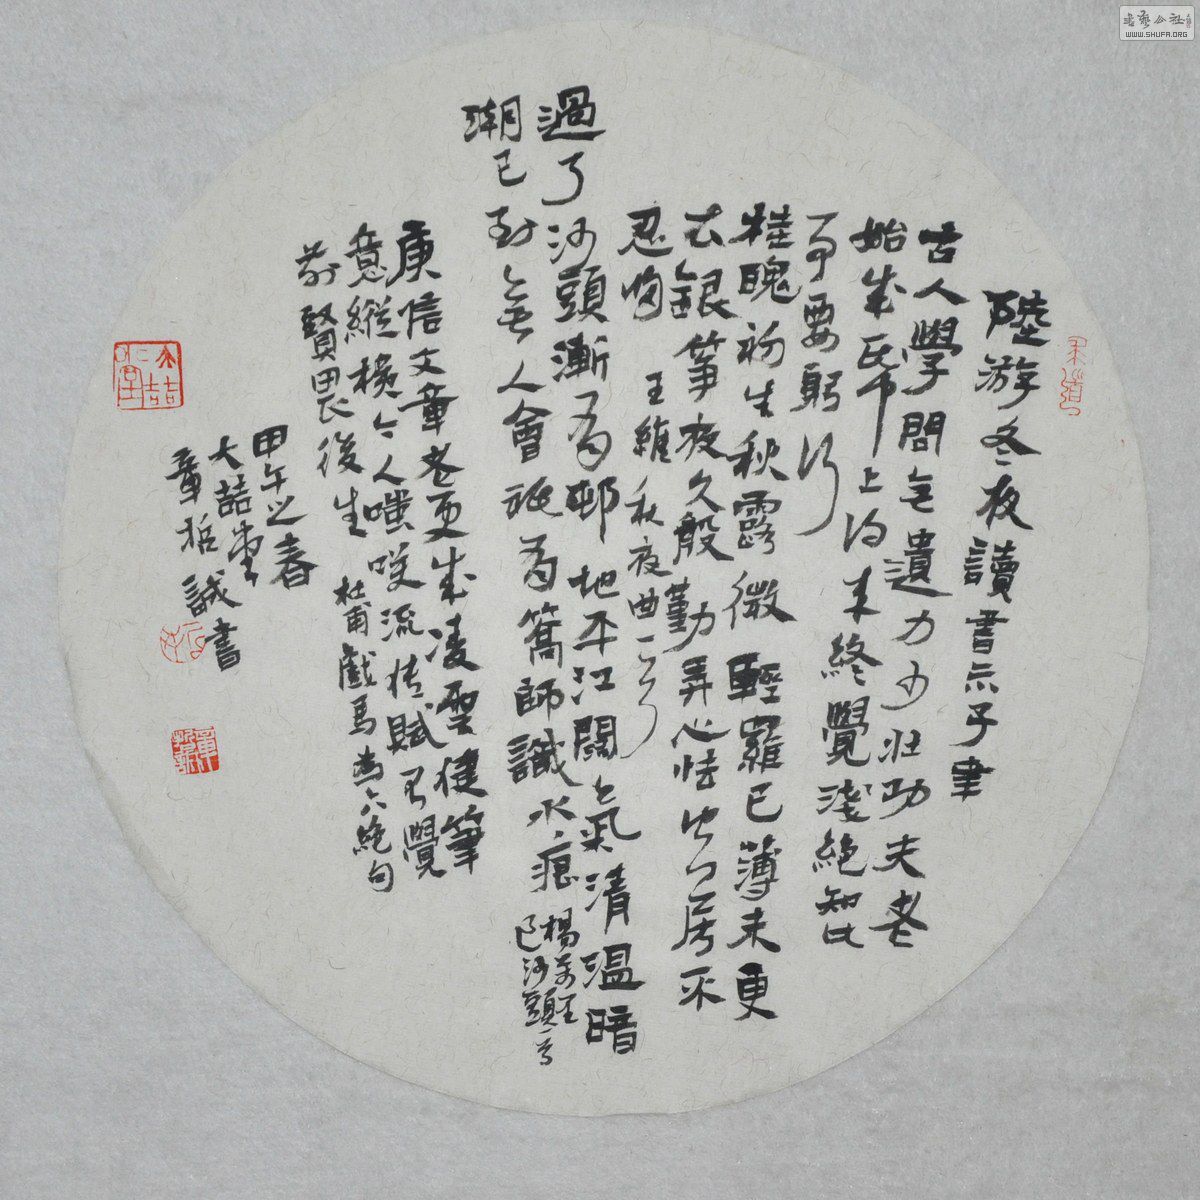 陸游冬夜讀書示子聿
古人學問無遺力少壯功夫老
始成帋上得来終覺淺絕知此
事要躬行
桂魄初生秋露微輕羅已薄未更
衣銀筝夜久殷勤弄心怯空房不
忍歸 王維秋夜曲一首
過了沙頭漸有邨地平江闊氣清温暗
潮已到無人會祗有篙師識水痕 楊萬里
沙頭一首
庾信文章老更成凌雲健筆
意縱橫今人嗤笑流传賦不覺
前賢畏後生 杜甫戲為六絕句
甲午之春
大喆堂
章哲誠書
書藝公社
WWW.SHUFA.ORG